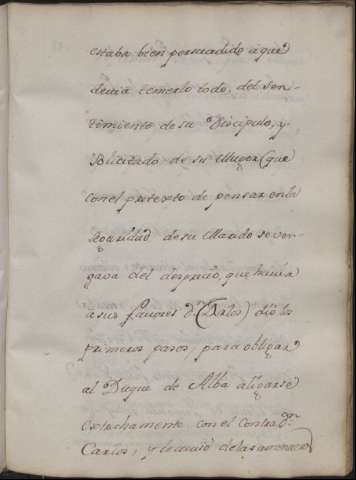 estaba bien persuadido á que
devia temerlo todo, del sen-
timiento de su Discipulo, y
solicitado de su Muger (que
con el pretexto de pensar en la
seguridad de su Marido se ven-
gava del desprecio, que havia
a sus favores Dn Carlos) dio los
primeros pasos, para obligar
al Duque de Alba á ligarse
estrechamente con el contra Dn
Carlos, y le avisó de las amenazas